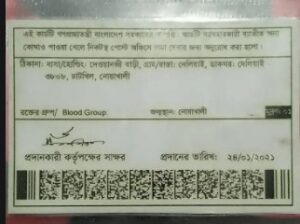 এই কার্ডটি গণপ্রজাতন্ত্রী বাংলাদেশ সরকারের সম্পত্তি। কার্ডটি ব্যবহারকারী ব্যতীত অন্য
কোথাও পাওয়া গেলে নিকটস্থ পোস্ট অফিসে জমা দেবার জন্য অনুরোধ করা হলো।
ঠিকানা: বাসা/হোল্ডিং: দেওয়ানজী বাড়ী, গ্রাম/রাস্তা: দেলিয়াই, ডাকঘর: দেলিয়াই
৩৮০৮, চাটখিল, নোয়াখালী
রক্তের গ্রুপ/ Blood Group: জন্মস্থান: নোয়াখালী
প্রদানকারী কর্তৃপক্ষের স্বাক্ষর প্রদানের তারিখ: ২৪/০১/২০২১